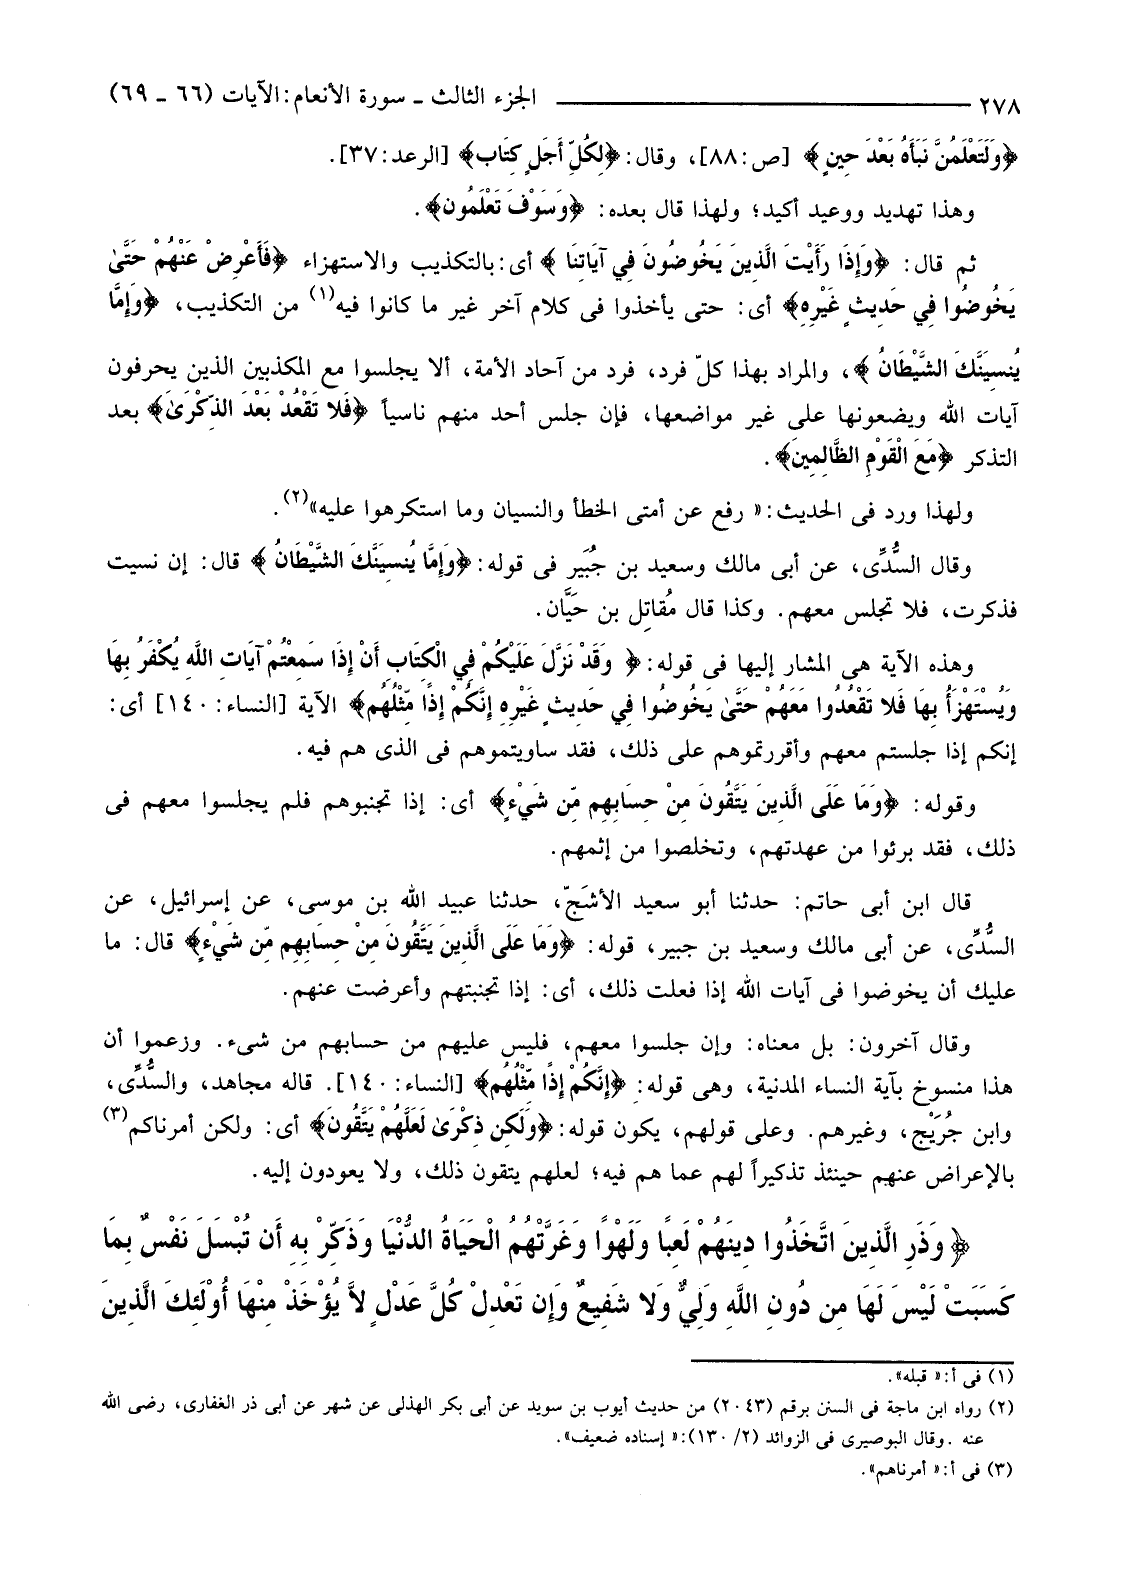 ٢٧٨ ـــــــــــــ الجزء الثالث ـ سورة الأنعام: الآيات (٦٦ ـ ٦٩)
﴿وَلَتَعْلَمُنَّ نَبَأَهُ بَعْدَ حِينٍ﴾ [ص: ٨٨]، وقال: ﴿لِكُلِّ أَجَلٍ كِتَاب﴾ [الرعد: ٣٧].
وهذا تهديد ووعيد أكيد؛ ولهذا قال بعده: ﴿وَسَوْفَ تَعْلَمُون﴾.
ثم قال: ﴿وَإِذَا رَأَيْتَ الَّذِينَ يَخُوضُونَ فِي آيَاتِنَا ﴾ أى: بالتكذيب والاستهزاء ﴿فَأَعْرِضْ عَنْهُمْ حَتَّىٰ
يَخُوضُوا فِي حَدِيثٍ غَيْرِهِ﴾ أى: حتى يأخذوا فى كلام آخر غير ما كانوا فيه(١) من التكذيب، ﴿وَإِمَّا
يُنسِيَنَّكَ الشَّيْطَانُ ﴾، والمراد بهذا كلّ فرد، فرد من آحاد الأمة، ألا يجلسوا مع المكذبين الذين يحرفون
آيات الله ويضعونها على غير مواضعها، فإن جلس أحد منهم ناسياً ﴿فَلا تَقْعُدْ بَعْدَ الذِّكْرَىٰ﴾ بعد
التذكر ﴿مَعَ الْقَوْمِ الظَّالِمِينَ﴾.
ولهذا ورد فى الحديث: « رفع عن أمتى الخطأ والنسيان وما استكرهوا عليه»(٢).
وقال السُّدِّى، عن أبى مالك وسعيد بن جُبَير فى قوله: ﴿وَإِمَّا يُنسِيَنَّكَ الشَّيْطَانُ ﴾ قال: إن نسيت
فذكرت، فلا تجلس معهم. وكذا قال مُقاتل بن حَيَّان.
وهذه الآية هى المشار إليها فى قوله: ﴿ وَقَدْ نَزَّلَ عَلَيْكُمْ فِي الْكِتَابِ أَنْ إِذَا سَمِعْتُمْ آيَاتِ اللَّهِ يُكْفَرُ بِهَا
وَيُسْتَهْزَأُ بِهَا فَلا تَقْعُدُوا مَعَهُمْ حَتَّىٰ يَخُوضُوا فِي حَدِيثٍ غَيْرِهِ إِنَّكُمْ إِذًا مِّثْلُهُم﴾ الآية [النساء: ١٤٠] أى:
إنكم إذا جلستم معهم وأقررتموهم على ذلك، فقد ساويتموهم فى الذى هم فيه.
وقوله: ﴿وَمَا عَلَى الَّذِينَ يَتَّقُونَ مِنْ حِسَابِهِم مِّن شَيْءٍ﴾ أى: إذا تجنبوهم فلم يجلسوا معهم فى
ذلك، فقد برئوا من عهدتهم، وتخلصوا من إثمهم.
قال ابن أبى حاتم: حدثنا أبو سعيد الأشَجّ، حدثنا عبيد الله بن موسى، عن إسرائيل، عن
السُّدِّى، عن أبى مالك وسعيد بن جبير، قوله: ﴿وَمَا عَلَى الَّذِينَ يَتَّقُونَ مِنْ حِسَابِهِم مِّن شَيْءٍ﴾ قال: ما
عليك أن يخوضوا فى آيات الله إذا فعلت ذلك، أى: إذا تجنبتهم وأعرضت عنهم.
وقال آخرون: بل معناه: وإن جلسوا معهم، فليس عليهم من حسابهم من شىء. وزعموا أن
هذا منسوخ بآية النساء المدنية، وهى قوله: ﴿إِنَّكُمْ إِذًا مِّثْلُهُم﴾ [النساء: ١٤٠]. قاله مجاهد، والسُّدِّى،
وابن جُرَيْج، وغيرهم. وعلى قولهم، يكون قوله: ﴿وَلَكِن ذِكْرَىٰ لَعَلَّهُمْ يَتَّقُونَ﴾ أى: ولكن أمرناكم(٣)
بالإعراض عنهم حينئذ تذكيراً لهم عما هم فيه؛ لعلهم يتقون ذلك، ولا يعودون إليه.
﴿ وَذَرِ الَّذِينَ اتَّخَذُوا دِينَهُمْ لَعِبًا وَلَهْوًا وَغَرَّتْهُمُ الْحَيَاةُ الدُّنْيَا وَذَكِّرْ بِهِ أَن تُبْسَلَ نَفْسٌ بِمَا
كَسَبَتْ لَيْسَ لَهَا مِن دُونِ اللَّهِ وَلِيٌّ وَلا شَفِيعٌ وَإِن تَعْدِلْ كُلَّ عَدْلٍ لاَّ يُؤْخَذْ مِنْهَا أُوْلَئِكَ الَّذِينَ
(١) فى أ: « قبله».
(٢) رواه ابن ماجة فى السنن برقم (٢٠٤٣) من حديث أيوب بن سويد عن أبى بكر الهذلى عن شهر عن أبى ذر الغفارى، رضى الله
عنه . وقال البوصيرى فى الزوائد (٢/ ١٣٠): « إسناده ضعيف».
(٣) فى أ: « أمرناهم».